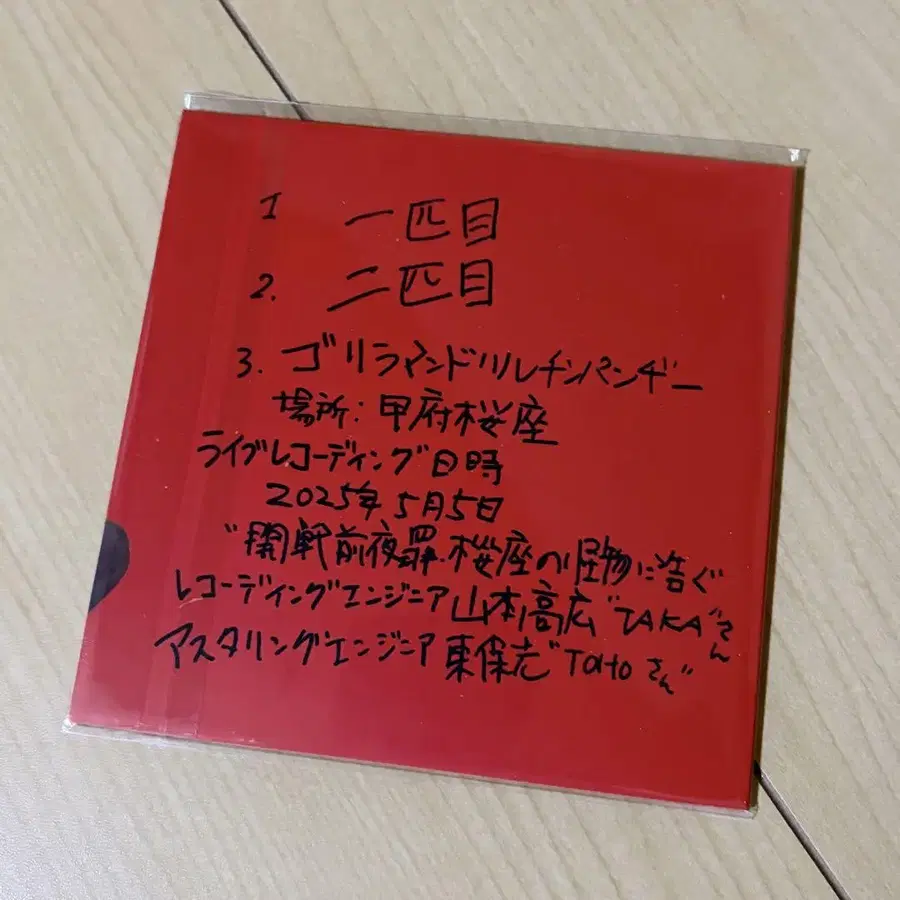 1 一匹目
2. 二匹目
3. ゴリラマンドリルチンパンヂー
場所:甲府桜座
ライブレコーディング日時
2025年5月5日
"開戦前夜罪.桜座の怪物に告ぐ
レコーディングエンジニア山本高広"TAKA"さん
アスタリングエンジニア東保志"Tatoさん"